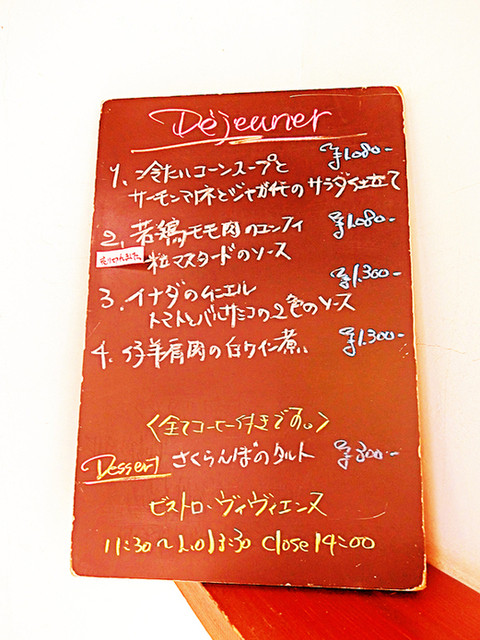 Déjeuner
1. 冷たいコーンスープと ¥1.080-
サーモンマリネとジャガイモのサラダ仕立て
2. 若鶏モモ肉のコンフィ ¥1.080-
売り切れました 粒マスタードのソース
3. イナダのムニエル ¥1.300-
トマトとバルサミコの2色のソース
4. 仔羊肩肉の白ワイン煮 ¥1.300-
〈全てコーヒー付きです。〉
Dessert さくらんぼのタルト ¥300-
ビストロ・ヴィヴィエンヌ
11:30〜L.O 13:30 Close 14:00